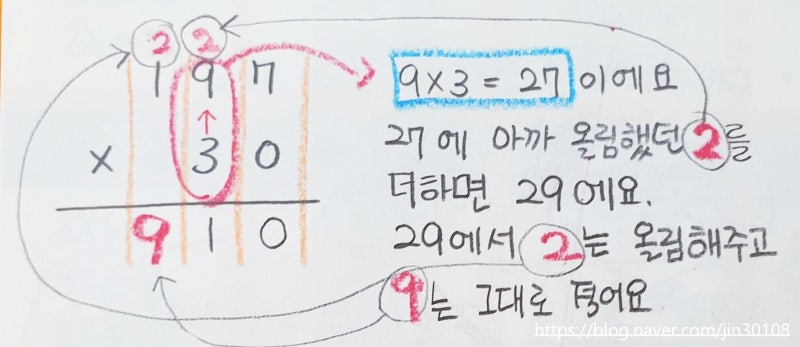 2 2
1 9 7
9×3 = 27 이에요
27에 아까 올림했던 2를
× 3 0
더하면 29에요.
9 1 0
29에서 2는 올림해주고
9는 그대로 적어요
https://blog.naver.com/jin30108